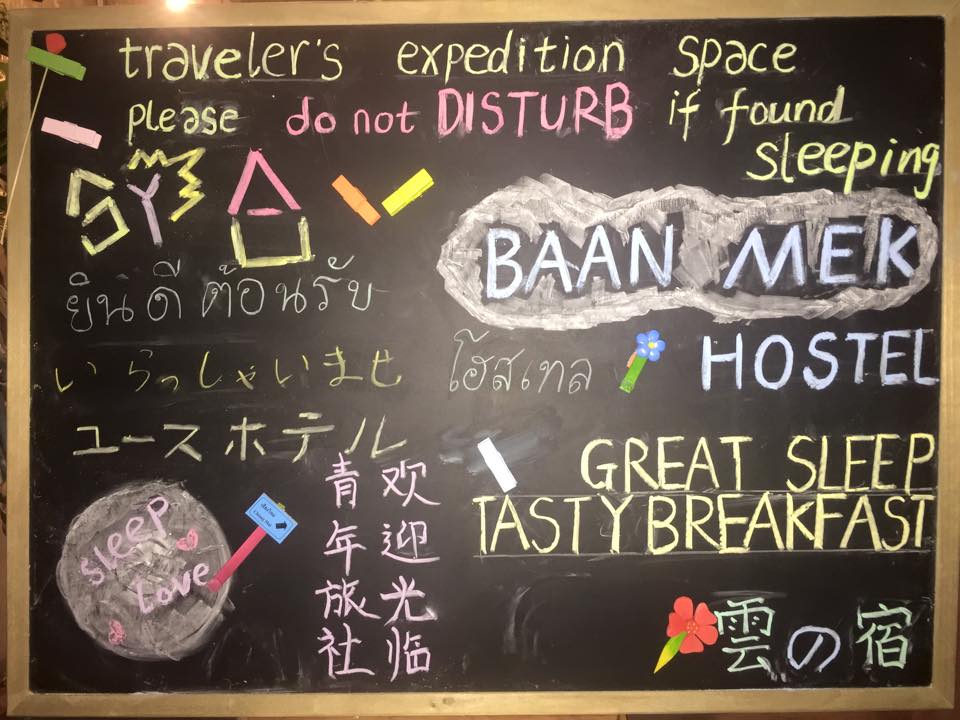 traveler's expedition space
please do not DISTURB if found
sleeping
BAAN MEK
ยินดีต้อนรับ
いらっしゃいませ
โฮสเทล
HOSTEL
ユースホテル
GREAT SLEEP
TASTY BREAKFAST
sleep
Love
欢迎光临
青年旅社
雲の宿